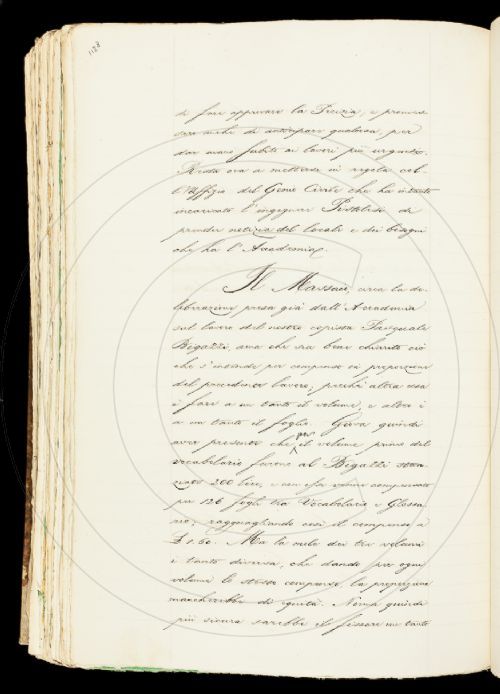 1128
di fare approvare la Perizia, e promise
sarà anche di anticipare qualcosa, per
dar mano subito ai lavori più urgenti.
Resta ora a mettersi in regola col-
l'Uffizio del Genio Civile che ha intanto
incaricato l'ingegnere di
prender notizia del locale e dei bisogni
che ha l'Accademia.
Il Massaio, circa la de-
liberazione presa già dall'Accademia
sul lavoro del nostro copista Pasquale
Bigazzi, ama che sia bene chiarito ciò
che s'intende per compenso in proporzione
del precedente lavoro; perchè altra cosa
è fare a un tanto il volume, e altro è
a un tanto il foglio. Giova quindi
aver presente che per il volume primo del
vocabolario furono al Bigazzi
200 lire, e con esse venne compensato
per 126 fogli tra Vocabolario e Glossa-
rio, ragguagliando così il compenso a
£ 1.60. Ma la mole dei tre volumi
è tanto diversa, che dando per ogni
volume lo stesso compenso la proporzione
mancherebbe di equità. Nonpertanto
più sicuro sarebbe il fissare un tanto